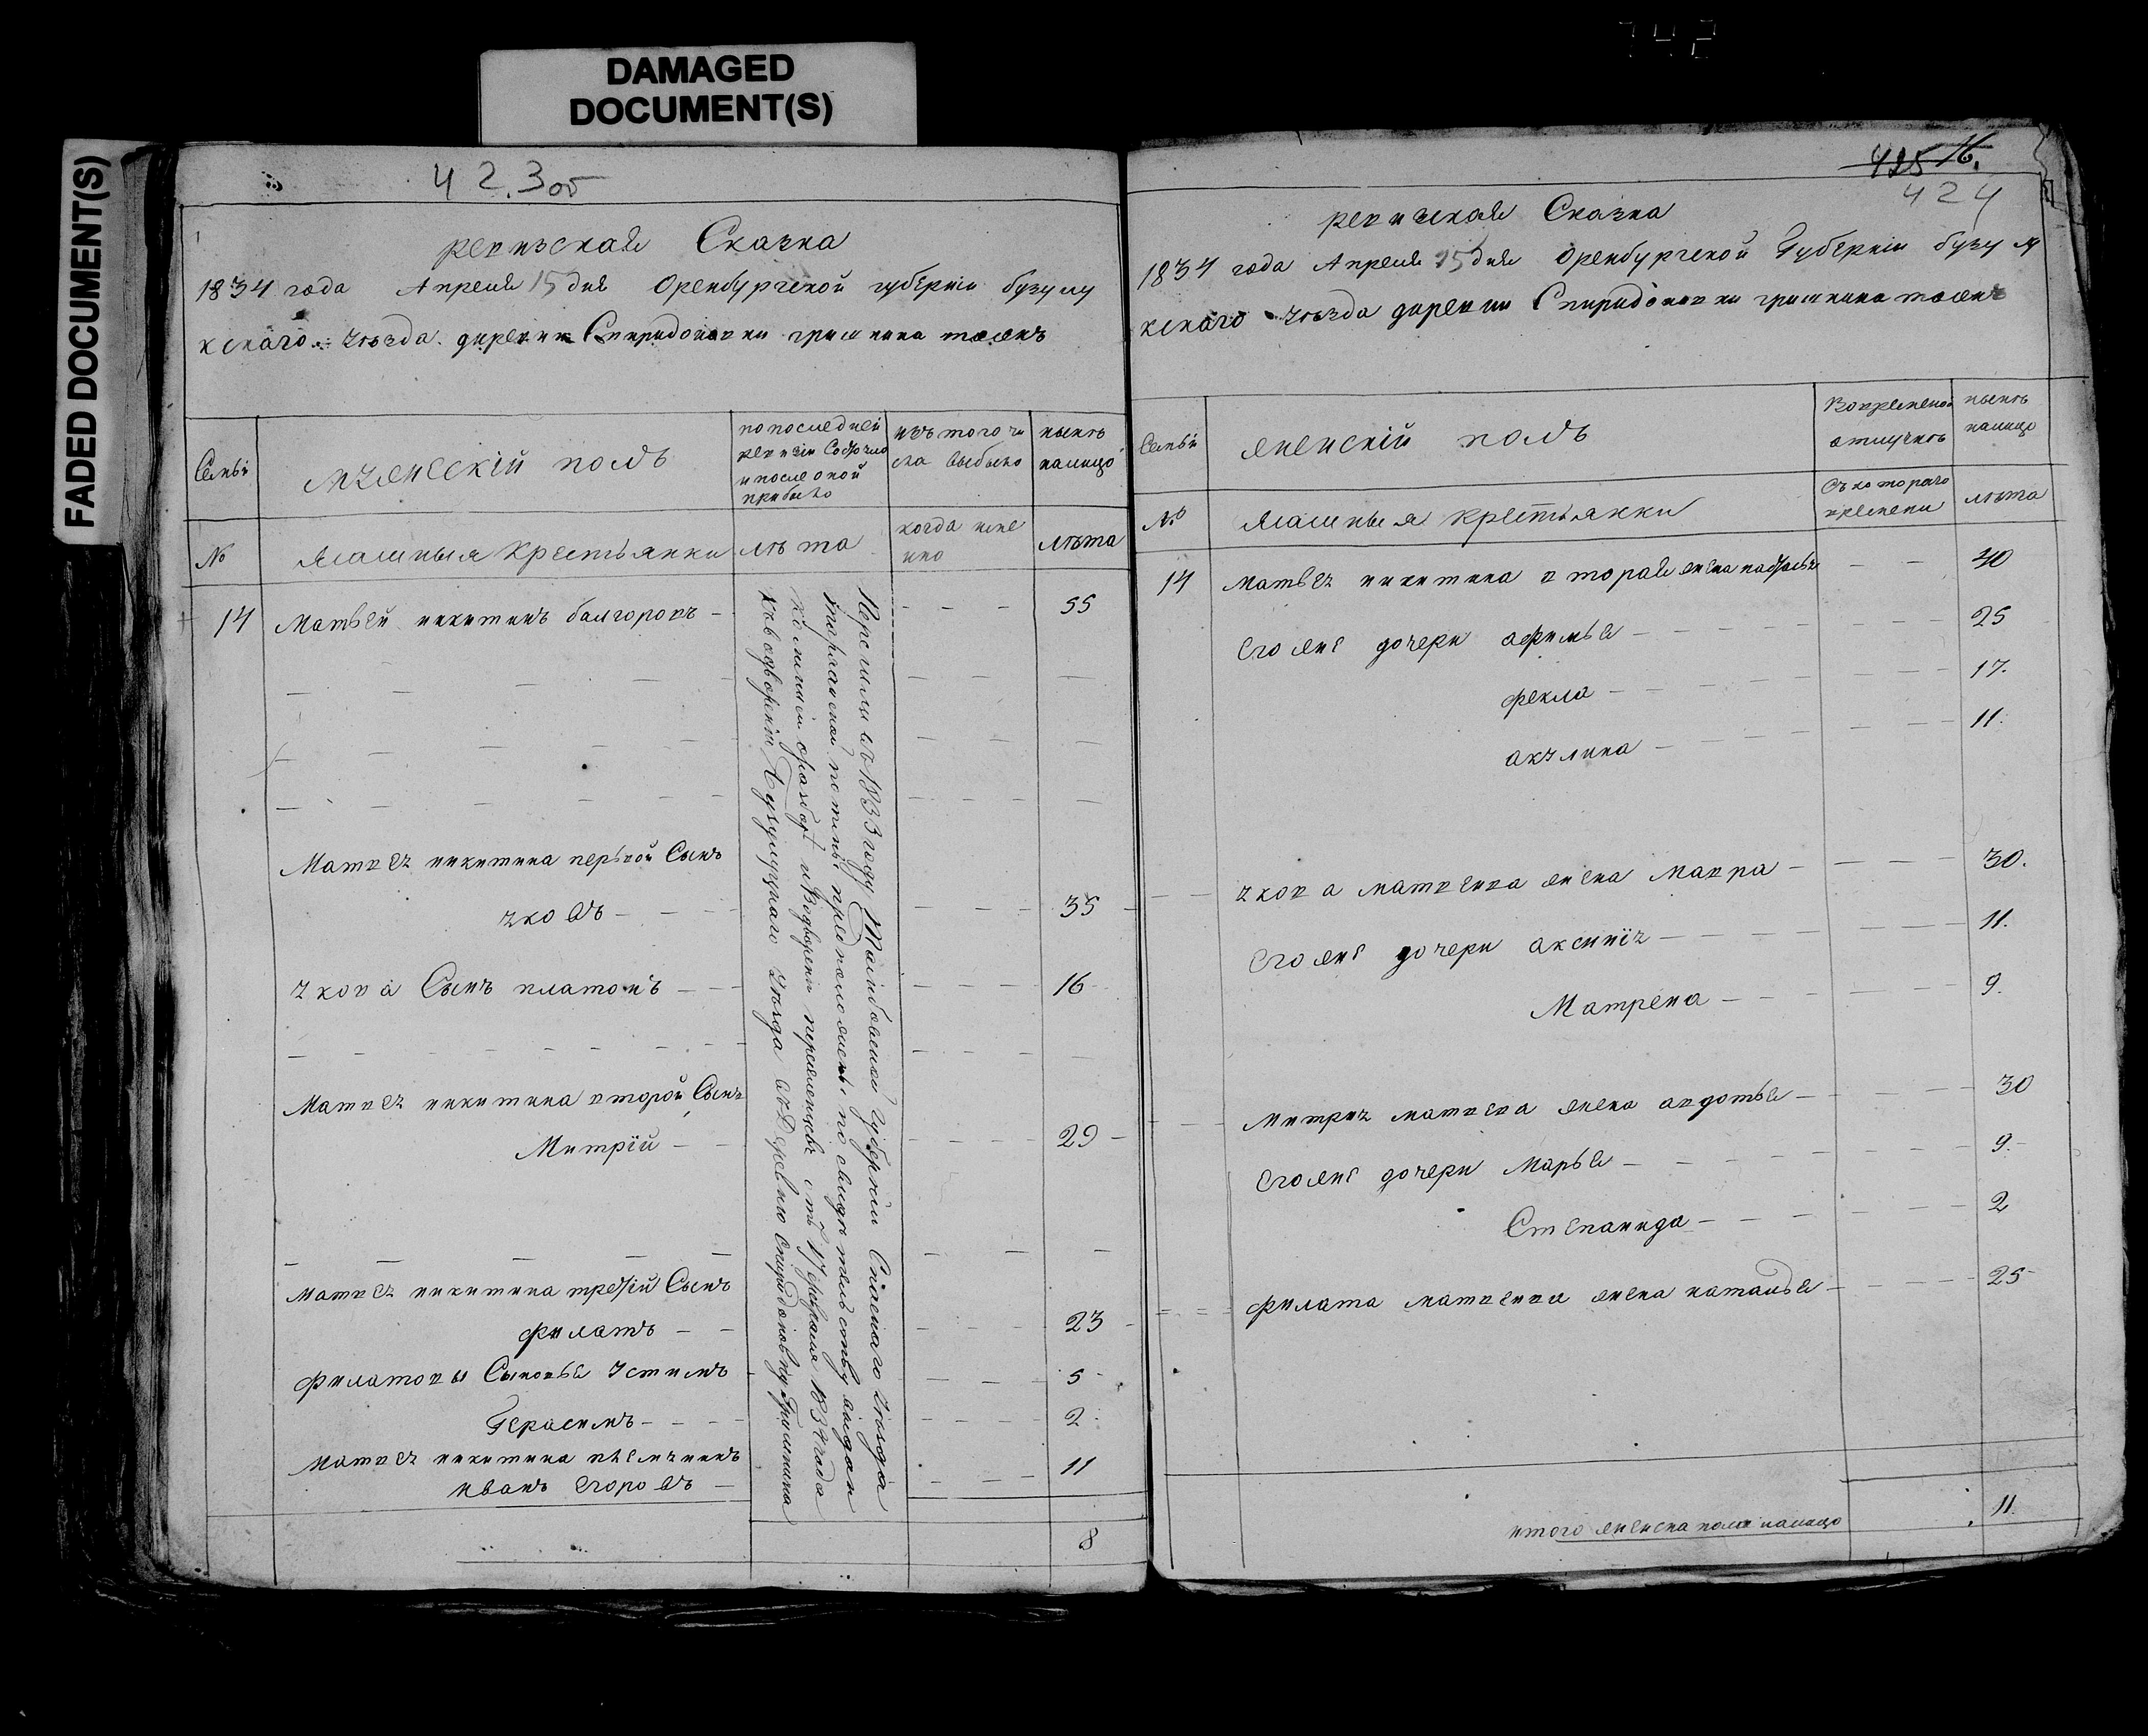 DAMAGED
DOCUMENT(S)
FADED DOCUMENT(S)
742
42.3об
ревизская Сказка
1834 года Апреля 15 дня Оренбургской губерніи бузулу
кскаго уѣзда деревни Спиридоновки гришкина тожъ
Семьи
мужескій полъ
по последней
ревизіи Состояло
и после оной
прибыло
изъ того чи
сла выбыло
нынѣ
налицо
№
Ясашныя крестьянки
лѣта
когда имен
но
лѣта
14 Матвей никитинъ болгоровъ 55
Матвея никитина первой Сынъ
яковъ 35
якова Сынъ платонъ 16
Матвея никитина второй Сынъ
Митрїй 29
Матвея никитина третій Сынъ
филатъ 23
филатовы Сыновья Устимъ 5
Герасимъ 2
Матвея никитина племянникъ
иванъ Егоровъ 11
8
Перешли въ 1833 году Танбовской губерніи Спаскаго уѣзда
по свидѣтельству
и Водворенію переселенцовъ отъ 17 февраля 1834 года
къ водворенію Бузулуцкаго уѣзда въ Деревню Спиридоновку Гришкина
425 16.
424
ревизская Сказка
1834 года Апреля 15 дня Оренбургской Губерніи бузулу
кскаго уѣзда деревни Спиридоновки гришкина тожъ
Семьи
женскій полъ
Вовременой
отлучкѣ
нынѣ
налицо
№
Ясашныя крестьянки
Съ котораго
времени
лѣта
14 Матвея никитина вторая жена настасья 40
Его же дочери афимья 25
фекла 17.
акулина 11.
якова матвеива жена мавра 30.
Его же дочери аксинїя 11.
Матрена 9.
митрия матвева жена авдотья 30
Его же дочери Марья 9.
Степанида 2
филата матвеива жена наталья 25
итого женска пола налицо 11.